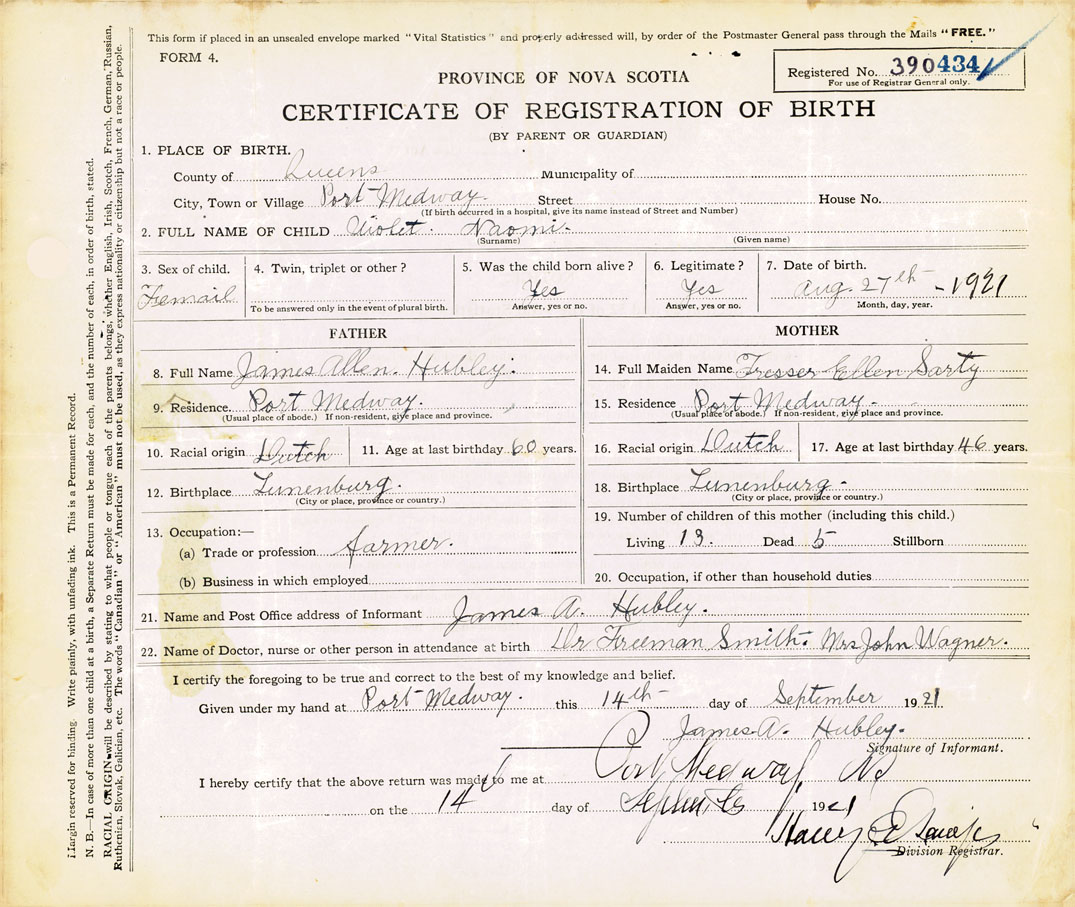 This form if placed in an unsealed envelope marked "Vital Statistics" and properly addressed will, by order of the Postmaster General pass through the Mails "FREE."
FORM 4.
Registered No. 390434
For use of Registrar General only.
PROVINCE OF NOVA SCOTIA
CERTIFICATE OF REGISTRATION OF BIRTH
(BY PARENT OR GUARDIAN)
1. PLACE OF BIRTH.
County of Queens Municipality of
City, Town or Village Port Medway. Street House No.
(If birth occurred in a hospital, give its name instead of Street and Number)
2. FULL NAME OF CHILD Violet. Naomi.
(Surname) (Given name)
3. Sex of child. Femail
4. Twin, triplet or other?
To be answered only in the event of plural birth.
5. Was the child born alive?
Yes
Answer, yes or no.
6. Legitimate?
Yes
Answer, yes or no.
7. Date of birth.
Aug. 27th - 1921
Month, day, year.
FATHER
8. Full Name James Allen. Hubley.
9. Residence Port Medway.
(Usual place of abode.) If non-resident, give place and province.
10. Racial origin Dutch 11. Age at last birthday 60 years.
12. Birthplace Lunenburg.
(City or place, province or country.)
13. Occupation:—
(a) Trade or profession farmer.
(b) Business in which employed
MOTHER
14. Full Maiden Name Tresser Ellen Sarty
15. Residence Port Medway.
(Usual place of abode.) If non-resident, give place and province.
16. Racial origin Dutch 17. Age at last birthday 46 years.
18. Birthplace Lunenburg.
(City or place, province or country.)
19. Number of children of this mother (including this child.)
Living 13. Dead 5 Stillborn
20. Occupation, if other than household duties
21. Name and Post Office address of Informant James A. Hubley.
22. Name of Doctor, nurse or other person in attendance at birth Dr Freeman Smith. Mrs John Wagner.
I certify the foregoing to be true and correct to the best of my knowledge and belief.
Given under my hand at Port Medway. this 14th day of September 1921
James A. Hubley.
Signature of Informant.
I hereby certify that the above return was made to me at Port Medway NS
on the 14 day of 1921
Division Registrar.
Margin reserved for binding. Write plainly, with unfading ink. This is a Permanent Record.
N. B.—In case of more than one child at a birth, a Separate Return must be made for each, and the number of each, in order of birth, stated.
RACIAL ORIGIN will be described by stating to what people or tongue each of the parents belongs, whether English, Irish, Scotch, French, German, Russian,
Ruthenian, Slovak, Galician, etc. The words "Canadian" or "American" must not be used, as they express nationality or citizenship but not a race or people.